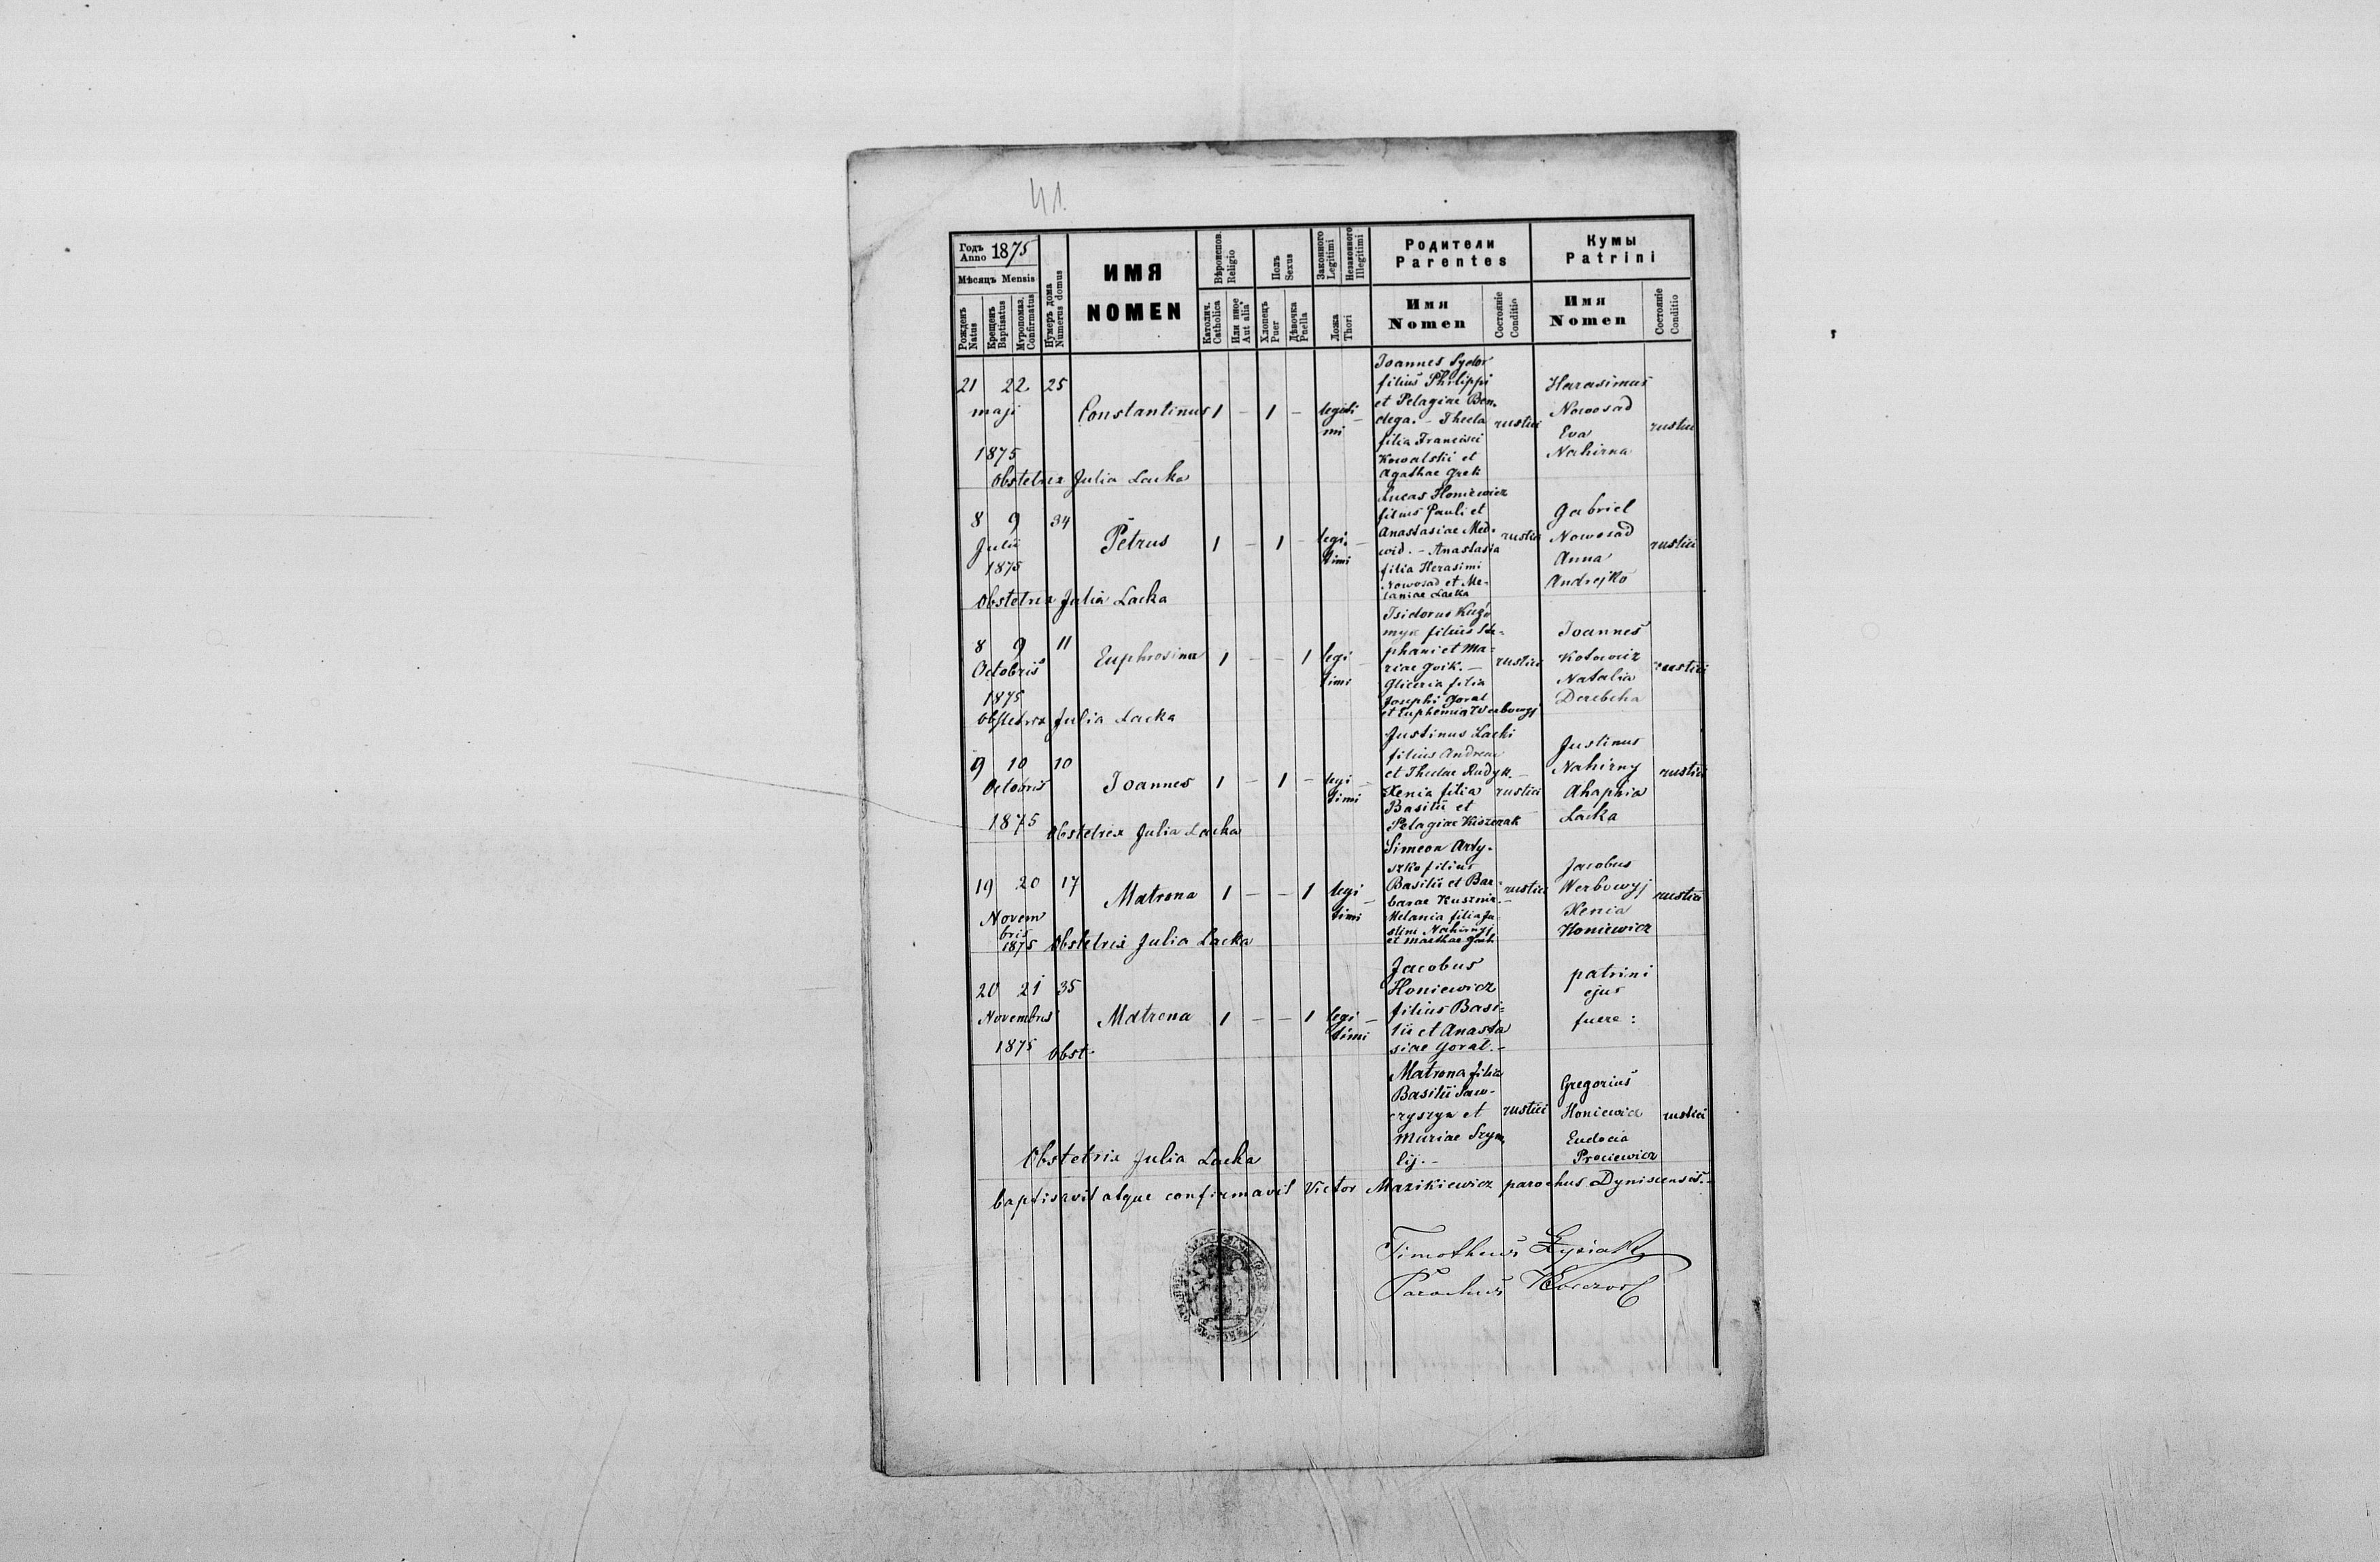 41.
Годъ Anno 1875
Мѣсяцъ Mensis
Рожденъ Natus
Крещенъ Baptisatus
Мѵропомаз. Confirmatus
Нумеръ дома Numerus domus
ИМЯ
NOMEN
Вѣроисповѣд. Religio
Католич. Catholica
Или иное Aut alia
Полъ Sexus
Хлопецъ Puer
Дѣвочка Puella
Законного Legitimi
Незаконного Illegitimi
Ложа Thori
Родители
Parentes
Имя
Nomen
Состояніе Conditio
Кумы
Patrini
Имя
Nomen
Состояніе Conditio
Joannes Sydor
21 22 25 filius Philippi Harasimus
maji Constantinus 1 – 1 – legiti et Pelagiae Ben- Nowosad
mi – dega. – Thecla rustici Eva rustici
1875 filia Francisci Nahirna
Kowalski et
Obstetrix Julia Lacka Agathae Grek
Lucas Honiewicz
8 9 34 filius Pauli et Gabriel
Julii Petrus 1 – 1 – legi- Anastasiae Med- rustici Nowosad rustici
1875 timi wid. – Anastasia Anna
filia Herasimi Andrejko
Nowosad et Me-
Obstetrix Julia Lacka laniae Lacka
Isidorus
8 9 11 filius Ste- Joannes
Octobris Euphrosina 1 – – 1 legi phani et Ma- Kotowicz
timi riae – rustici Natalia rustici
1875 Gliceria filia Derebcha
Josephi Goral
Obstetrix Julia Lacka et Euphemia Werbowyj
Justinus Lacki
9 10 10 filius Andreae Justinus
Octobris Joannes 1 – 1 – legi et Theclae Rudyk. – Nahirny rustici
timi Xenia filia rustici Ahaphia
1875 Basilii et Lacka
Obstetrix Julia Lacka Pelagiae Kiszczak
Simeon Arty-
szko filius Jacobus
19 20 17 Matrona 1 – – 1 legi Basilii et Bar- rustici Werbowyj rustici
Novem timi barae – Xenia
bris Melania filia Ju- Honiewicz
1875 Obstetrix Julia Lacka stini Nahirnyj
et Marthae
Jacobus patrini
20 21 35 Honiewicz ejus
Novembris Matrona 1 – – 1 legi – filius Basi- fuere:
timi lii et Anasta
1875 Obst. siae Goral. –
Matrona filia Gregorius
Basilii Saw-
czyszyn et rustici Honiewicz rustici
Mariae Szym Eudocia
Obstetrix Julia Lacka lij. – Prociewicz
baptisavit atque confirmavit Victor Mazikiewicz parochus Dyniscensis. –
Timotheus Łysiak
Parochus